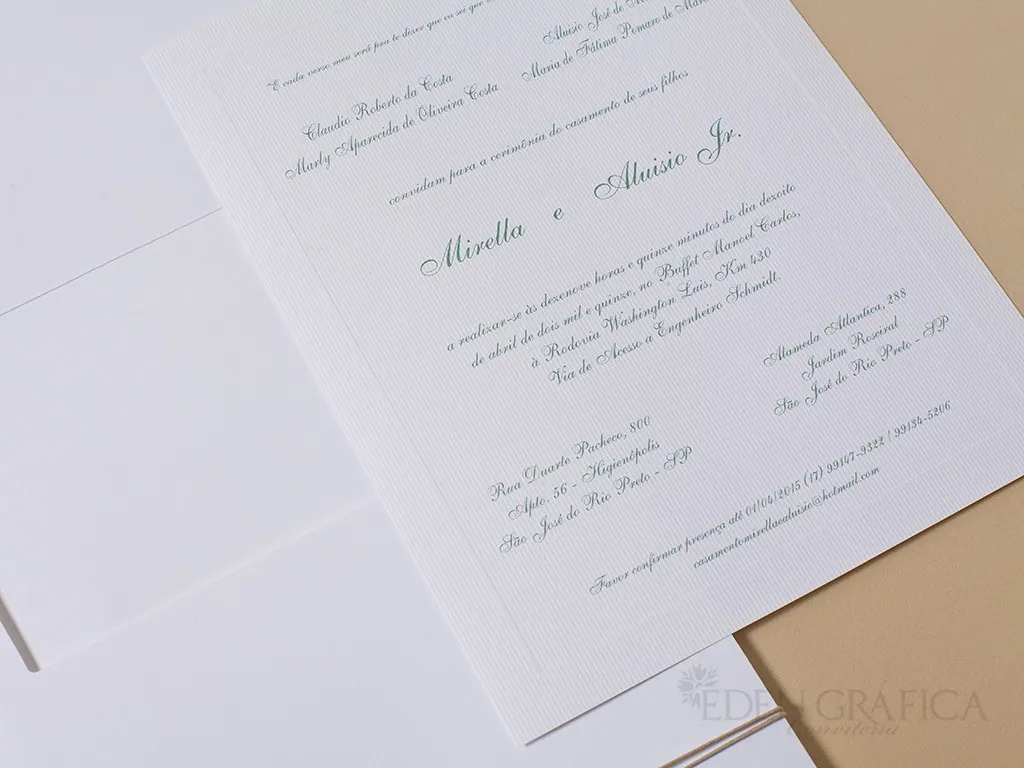 "E cada verso meu será pra te dizer que eu sei que
Claudio Roberto da Costa
Marly Aparecida de Oliveira Costa
Aluisio José de
Maria de Fátima Pomaro de
convidam para a cerimônia do casamento de seus filhos
Mirella e Aluisio Jr.
a realizar-se às dezenove horas e quinze minutos do dia dezoito
de abril de dois mil e quinze, no Buffet Manoel Carlos,
à Rodovia Washington Luis, Km 430
Via de Acesso a Engenheiro Schmidt.
Rua Duarte Pacheco, 800
Apto. 56 - Higienópolis
São José do Rio Preto - SP
Alameda Atlantica, 288
Jardim Roseiral
São José do Rio Preto - SP
Favor confirmar presença até 01/04/2015 (17) 99147-9322 / 99134-5206
casamentomirellaealuisio@hotmail.com
EDEN GRÁFICA
convitería